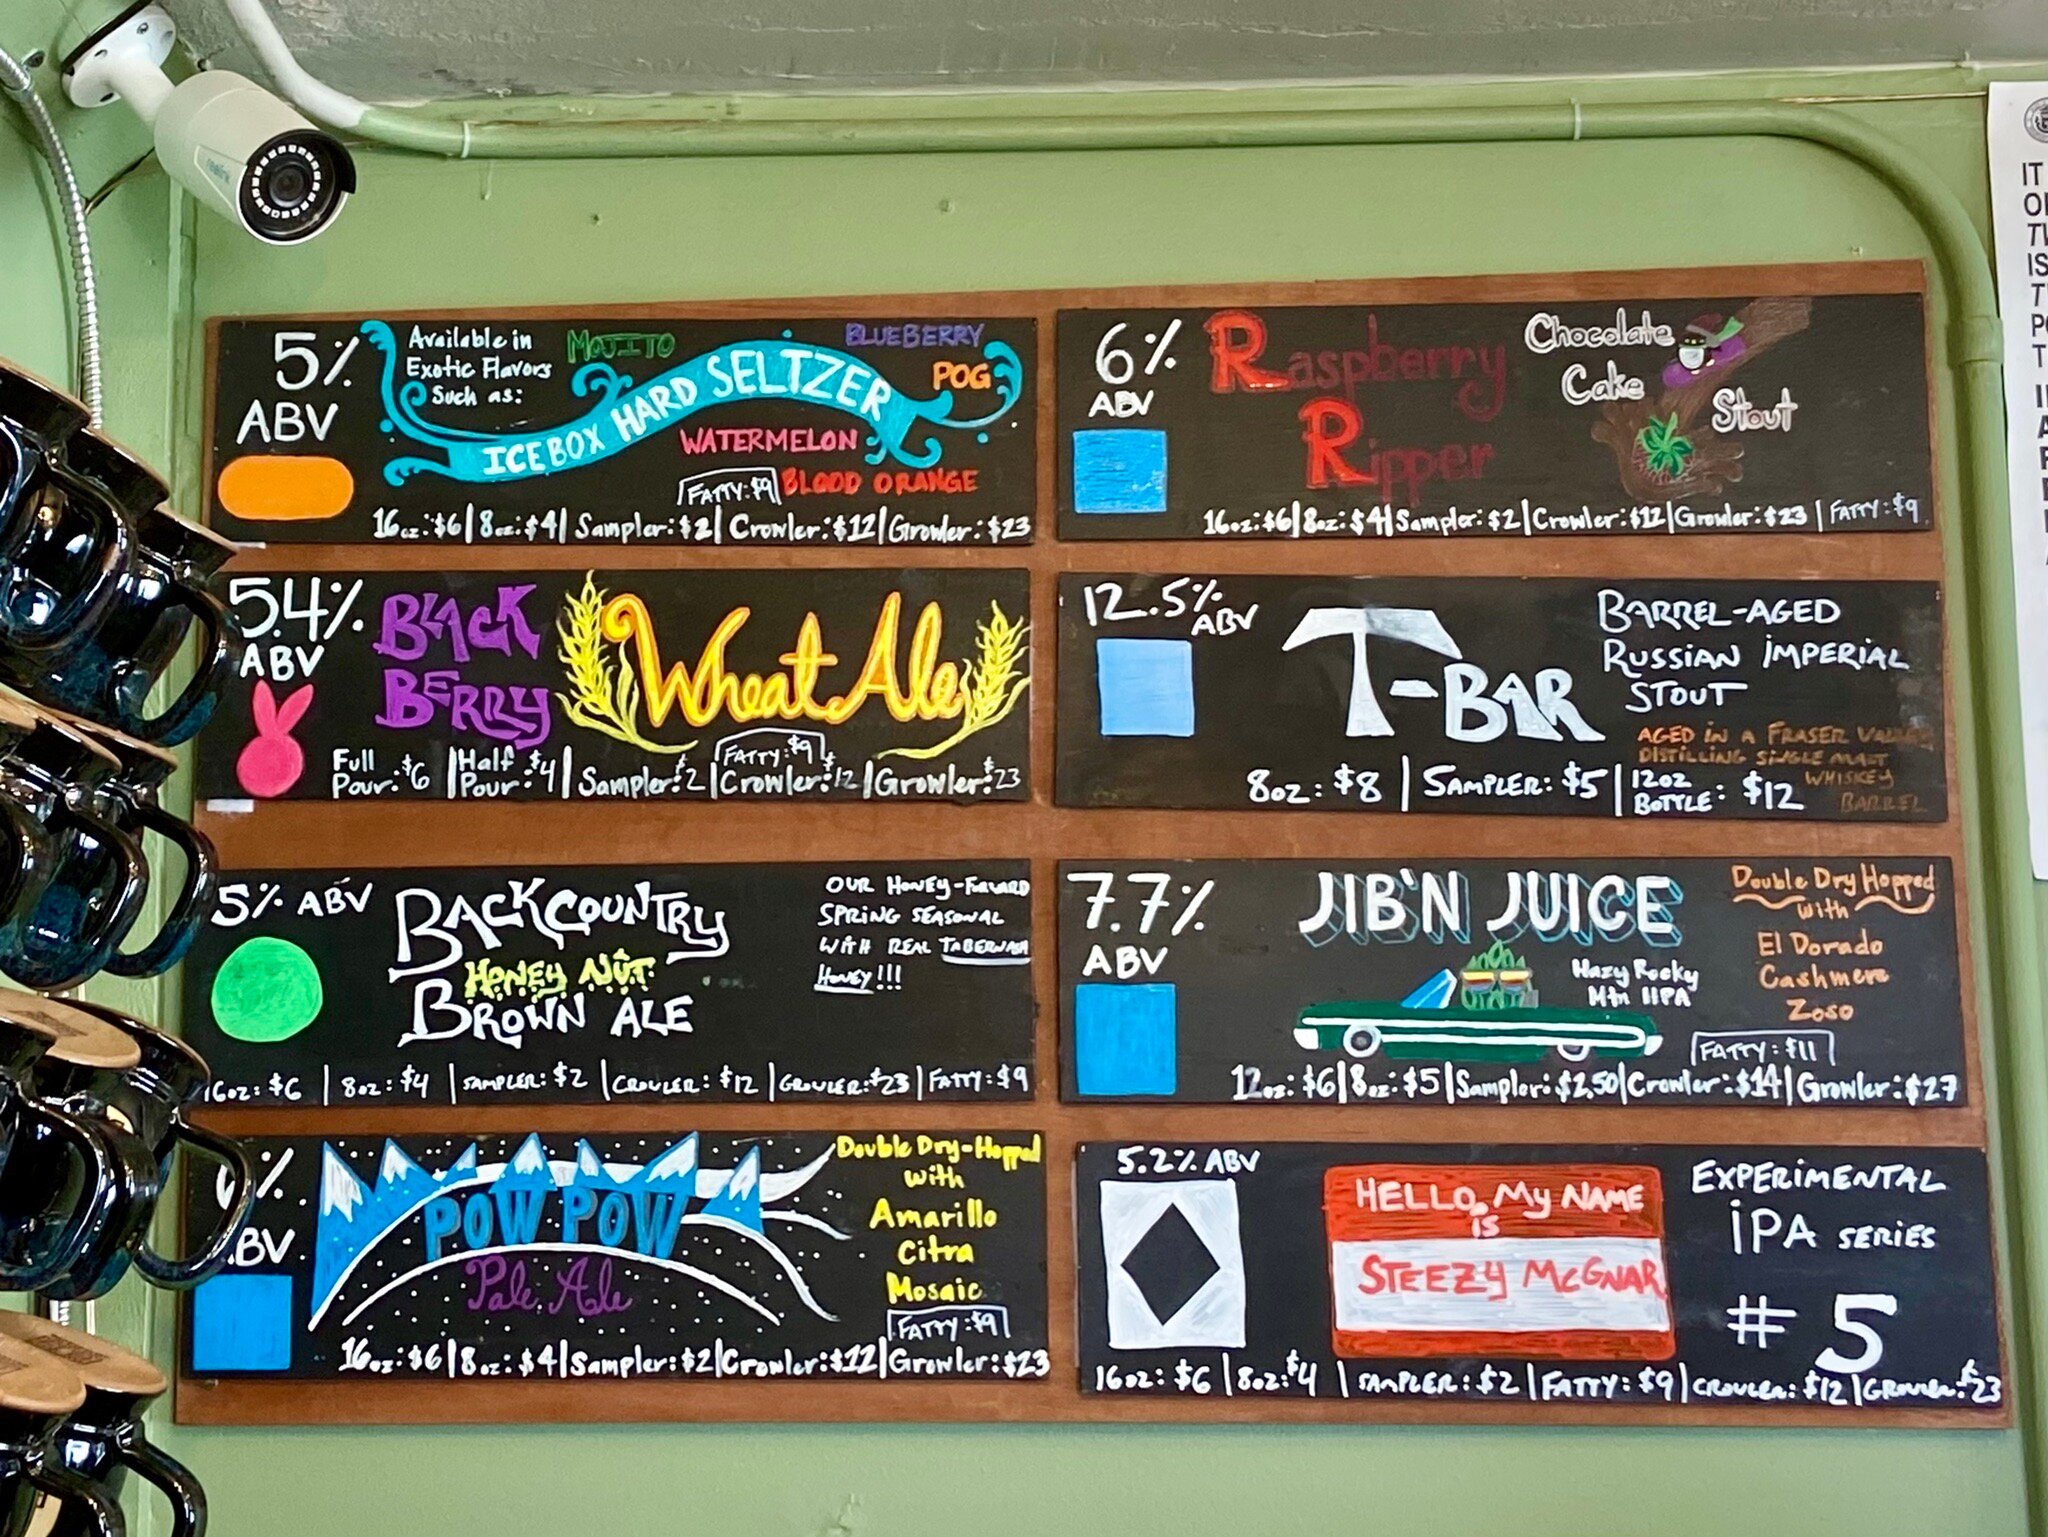 reolink
5% ABV
Available in
Exotic Flavors
Such as:
MOJITO
BLUEBERRY
POG
ICEBOX HARD SELTZER
WATERMELON
BLOOD ORANGE
FATTY: $9
16oz: $6 | 8oz: $4 | Sampler: $2 | Crowler: $12 | Growler: $23
6% ABV
Raspberry
Ripper
Chocolate
Cake
Stout
16oz: $6 | 8oz: $4 | Sampler: $2 | Crowler: $12 | Growler: $23 | FATTY: $9
5.4% ABV
BLACK
BERRY
Wheat Ale
FATTY: $9
Full Pour: $6 | Half Pour: $4 | Sampler: $2 | Crowler: $12 | Growler: $23
12.5% ABV
T-BAR
BARREL-AGED
RUSSIAN IMPERIAL
STOUT
AGED IN A FRASER VALLEY
DISTILLING SINGLE MALT
WHISKEY
BARREL
8oz: $8 | SAMPLER: $5 | 12oz BOTTLE: $12
5% ABV
BACKCOUNTRY
HONEY NUT
BROWN ALE
OUR HONEY-FORWARD
SPRING SEASONAL
WITH REAL TABERWASH
HONEY!!!
16oz: $6 | 8oz: $4 | SAMPLER: $2 | CROWLER: $12 | GROWLER: $23 | FATTY: $9
7.7% ABV
JIB'N JUICE
Hazy Rocky
Mtn IIPA
Double Dry Hopped
with
El Dorado
Cashmere
Zoso
FATTY: $11
12oz: $6 | 8oz: $5 | Sampler: $2.50 | Crowler: $14 | Growler: $27
6% ABV
POW POW
Pale Ale
Double Dry-Hopped
with
Amarillo
Citra
Mosaic
FATTY: $9
16oz: $6 | 8oz: $4 | Sampler: $2 | Crowler: $12 | Growler: $23
5.2% ABV
HELLO, MY NAME
is
STEEZY MCGNAR
EXPERIMENTAL
IPA SERIES
# 5
16oz: $6 | 8oz: $4 | SAMPLER: $2 | FATTY: $9 | CROWLER: $12 | GROWLER: $23
IT
IS